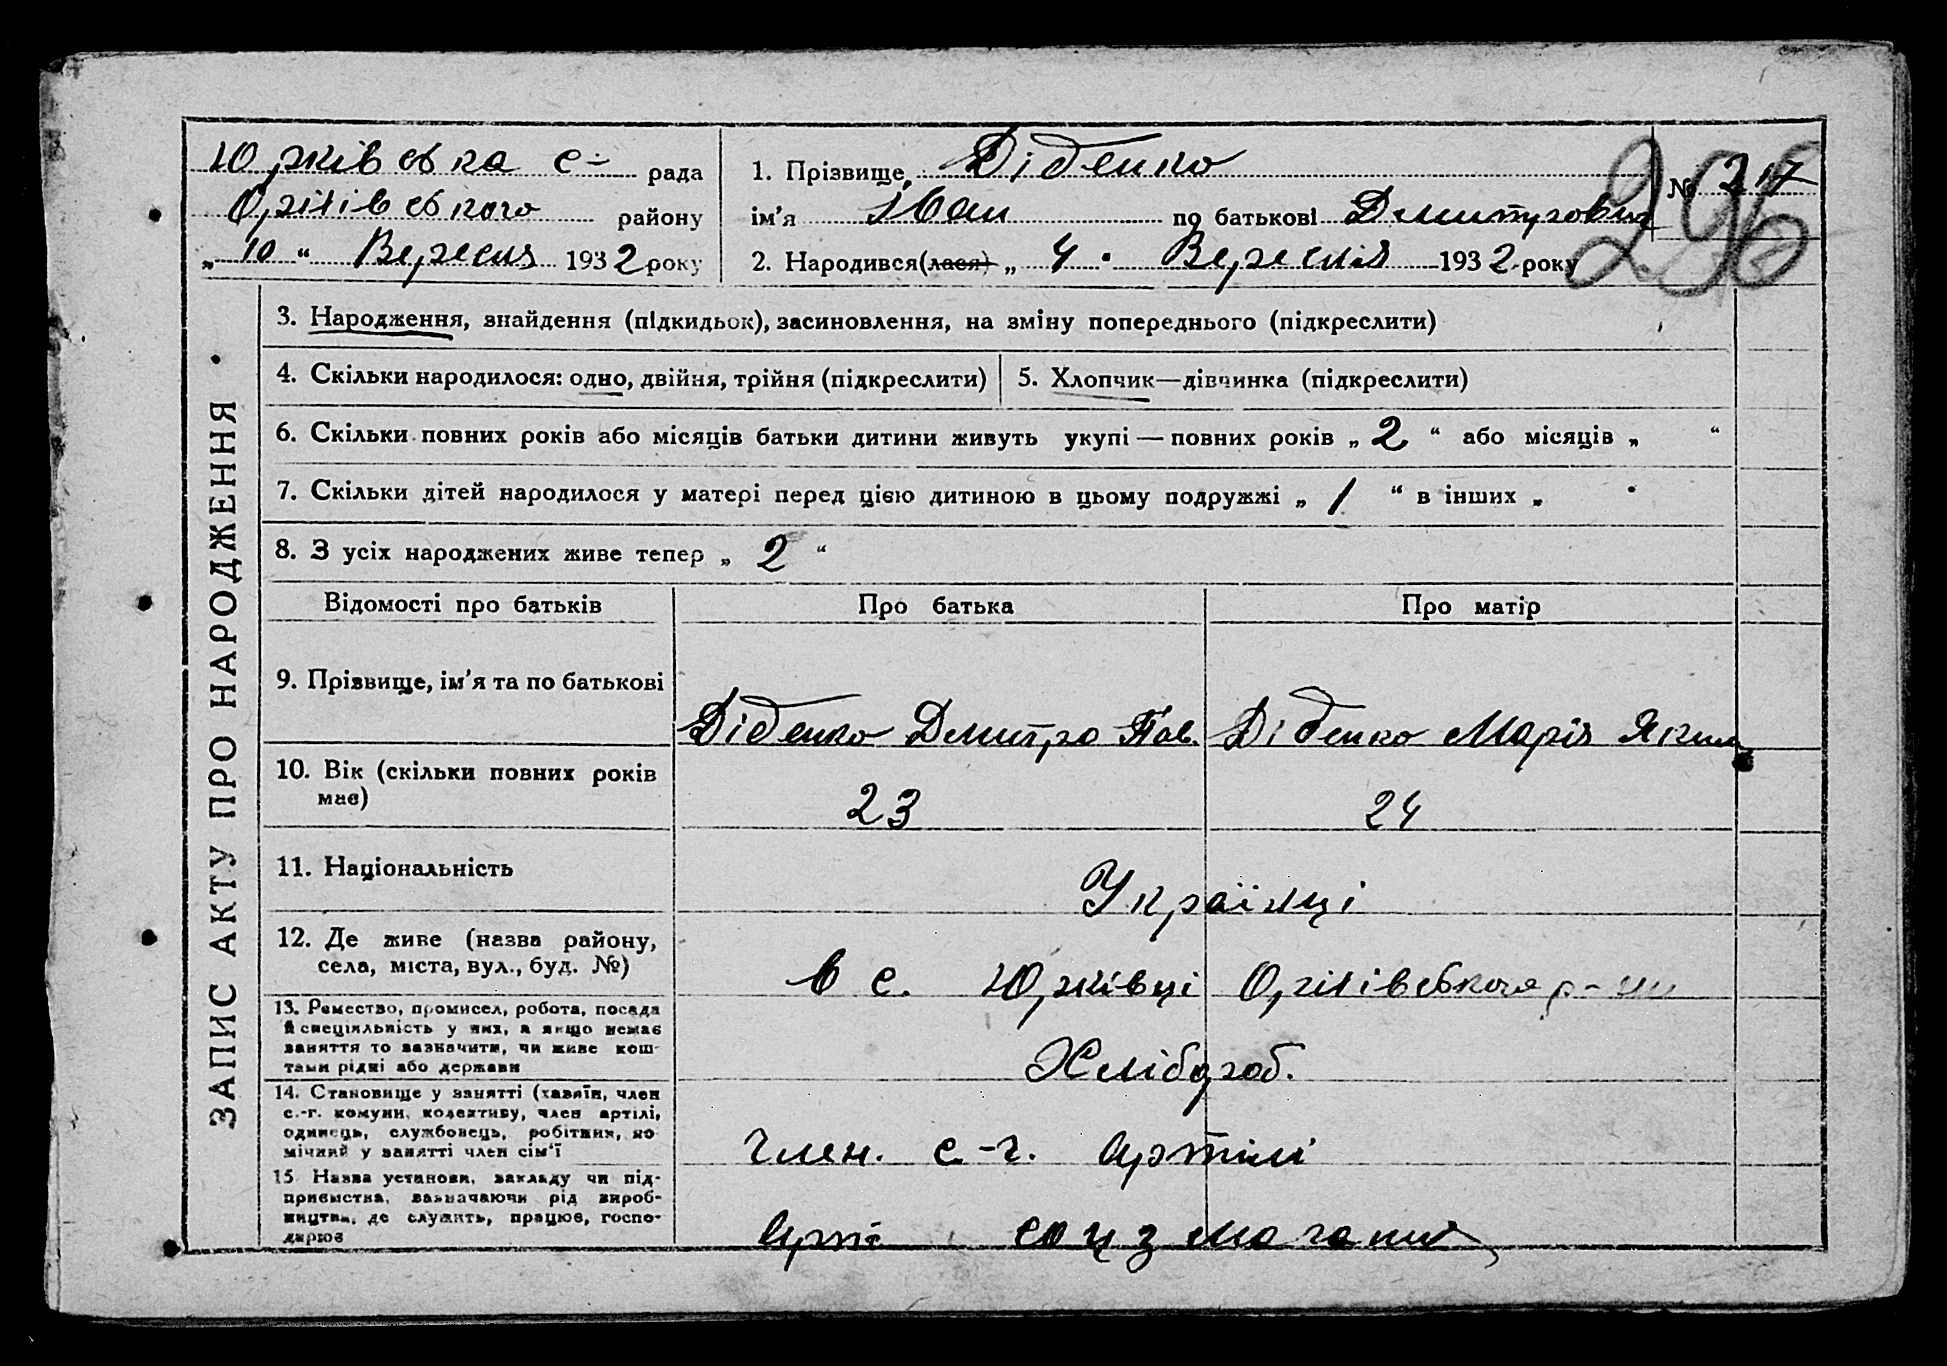 Юрківська с- рада
Оржівського району
„ 10 “ Вересня 1932 року
1. Прізвище Діденко
ім’я Іван по батькові Дмитрович
2. Народився(лася) „ 4 . Вересня 1932 року
№ 217
296
ЗАПИС АКТУ ПРО НАРОДЖЕННЯ
3. Народження, знайдення (підкидьок), засиновлення, на зміну попереднього (підкреслити)
4. Скільки народилося: одно, двійня, трійня (підкреслити)
5. Хлопчик—дівчинка (підкреслити)
6. Скільки повних років або місяців батьки дитини живуть укупі — повних років „ 2 “ або місяців „ “
7. Скільки дітей народилося у матері перед цією дитиною в цьому подружжі „ 1 “ в інших „
8. З усіх народжених живе тепер „ 2 “
Відомості про батьків Про батька Про матір
9. Прізвище, ім’я та по батькові
Діденко Дмитро Пав. Діденко Марія Яким
10. Вік (скільки повних років
має)
23 24
11. Національність
Українці
12. Де живе (назва району,
села, міста, вул., буд. №)
в с. Юрківці Оржівського р-ну
13. Ремество, промисел, робота, посада
й спеціяльність у них, а якщо немає
заняття то зазначити, чи живе кош-
тами рідні або держави
Хлібороб.
14. Становище у занятті (хазяїн, член
с.-г. комуни, колективу, член артілі,
одинець, службовець, робітник, по
мічний у занятті член сім’ї
Член. с-г. артілі
15 Назва установи, закладу чи під-
приємства, зазначаючи рід вироб-
ництва, де служить, працює, госпо-
дарює
Арті соцзмагання